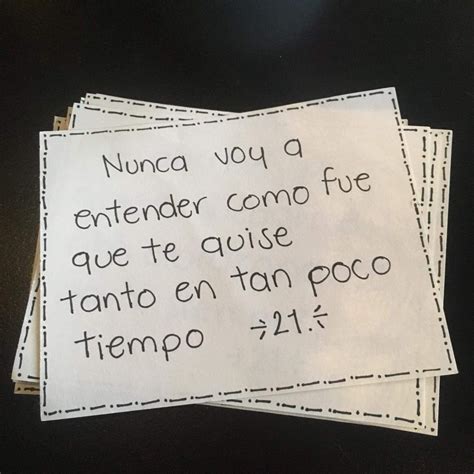 Nunca voy a
entender como fue
que te quise
tanto en tan poco
tiempo ÷21÷